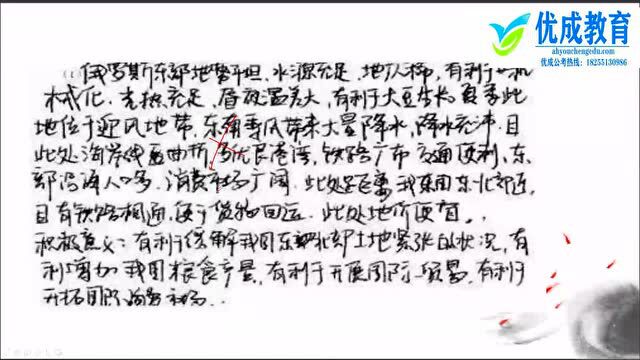 优成教育
ahyouchengedu.com
优成公考热线：18255130986
俄罗斯东部地势平坦，水源充足，地广人稀，有利于机
械化．光热充足，昼夜温差大，有利于大豆生长夏季此
地位于迎风地带，东南季风带来大量降水，降水充沛．且
此处海岸线曲折，多优良港湾，铁路广布交通便利，东
部沿海人口多，消费市场广阔．此处距离我国东北部近，
且有铁路相通，便于货物回运．此处地价便宜．
积极意义：有利于缓解我国东北部土地紧张的状况，有
利增加我国粮食产量，有利于开展国际贸易，有利于
开拓国际海外市场．